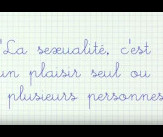 "La sexualité, c'est
un plaisir seul ou
plusieurs personnes